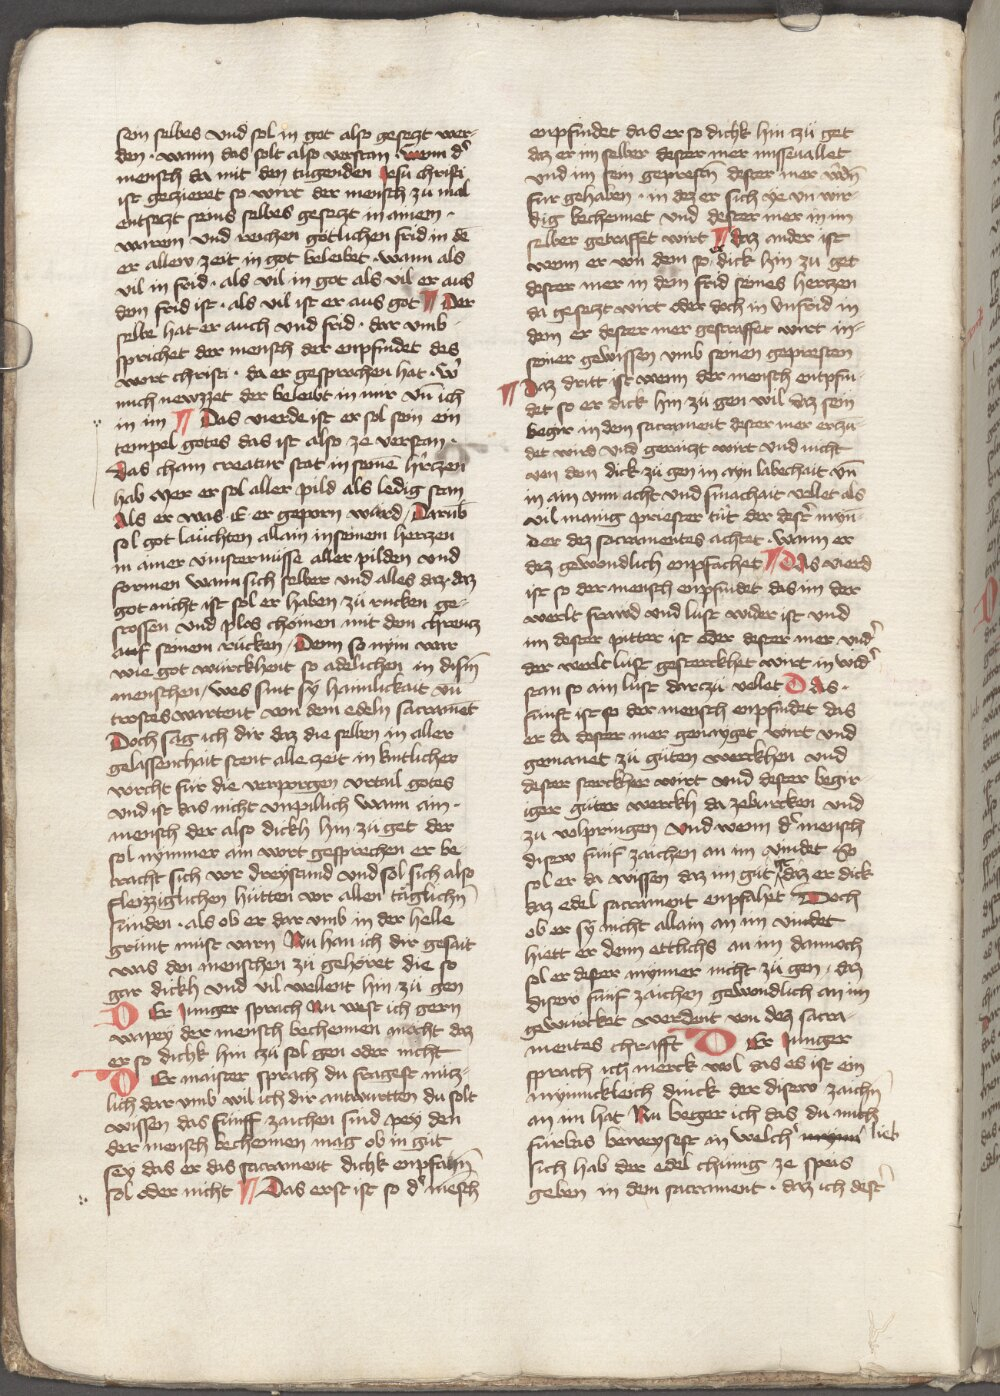 sein selbes und sol in got also gesetzt wer-
den · wann das solt also verstan · wenn d'
mensch da mit den tugenden Jesu christi
ist geczieret so wirt der mensch zu mal
entsetzt seins selbes gesetzt in ainem ·
warem und reichen götlichen frid in dē
er allew zeit in got beleibet · wann als
vil in frid · als vil in got als vil er aus
dem frid ist · als vil ist er aus got ¶ Der
selbe hat er auch und frid · dar umb ·
sprichet der mensch der enpfindet des
wort christi · da er gesprochen hat · w'
mich newzzet der beleibt in mir uñ ich
in im ¶ Das vierde ist er sol sein ein
tempel gotes das ist also ze verstan ·
Das cham creatur stat in seinē h'czen
hab mer er sol aller pild als ledig stan
Als er was · E · er geporn ward / Darūb
sol got läuchten allain in seinem herczen
in ainer vinsternüsse aller pilden und
formen wann sich selber und alles daz · daz
got nicht ist sol er haben · zů rucken ge-
stossen und plos chömen mit dem chreucz
auf seinem rücken / Denn so nym war
wie got würckhent so adelichen in dism̄
menschen / wes sint sy haimlickait uñ
trostes wartent von dem edeln sacramēt
Doch sag ich dir daz die selben in aller
gelassenchait stent alle zeit in kintlicher
vorcht für die verporgen urtail gotes
und ist das nicht unpillich wann ain ·
mensch der also dickh hin zů get der
sol nymmer ain wort gesprechen er be
tracht sich vor dreystund und sol sich also
fleizziglichen hütten vor allen täglichn̄
sunden · als ob er dar umb in der helle
grunt müst varn Nu han ich dir gesait
was den menschen zů gehöret die so
gar dickh und vil wellent hin zů gen
DEr Junger sprach Nu west ich gern
wapey der mensch bechennen möcht daz
er so dickh hin czů sol gen oder nicht
DEr maister sprach du fragest nücz-
lich dar umb wil ich dir antwurtten du solt
wissen das fünff zaichen sind pey den
der mensch bechennen mag ob im gůt
sey das er das sacrament dickh enpfahn̄
sol oder nicht ¶ Das erst ist so d' mēsch
enpfindet das er so dichk hin zů get
daz er im selber dester mer missevallet
und im sein geprestn̄ dester mer wʼdn̄
für gehaben · in dez er sich ye un wir-
dig bechennet und dester mer in im
selber getrasset wirt ¶ Daz ander ist
wenn er von dem so dick hin zu get
dester mer in dem frid seines herczen
da geseczt wirt oder doch in unfrid in
dem er dester mer gestraffet wirt in-
seiner gewissen umb seinen gepresten
¶ Daz dritt ist wenn der mensch entpfin-
det so er dick hin zů gen wil daz sein
begir in dem sacrament dester mer erczů-
det wird und geraiczt wirt und nicht
von dem dick zů gen in ayn labechait uñ
in ain unn acht und smachait vellet als
vil manig priester tůt der dest' myn-
der dez sacramentes achtet · wann er
dez gewondlich enpfachet ¶ DAs vierd
ist so der mensch enpfindet das im der
werlt frawd und lust wider ist und
im dester pitter ist oder dester mer uud'
der werlt lust gesterckhet wirt in wid'
stan so ain lust darczů vellet DAs ·
funft ist so der mensch enpfindet das
er da dester mer genayget wirt und
gemanet zů gůten werckhen und
dester sterckher wirt und dester begir
iger gůter werckh da zeburcken und
zů volpringen Und wenn d' mensch
disew funf zaichen an im vindet So
sol er da wissen daz im gůt ist daz er dick
daz edel sacrament enpfahet Doch
ob er sy nicht allain an im vindet
hiett er denn ettlichs an im dannoch
sol er dester mynner nicht zů gen · daz
disew funf zaichen gewondlich an im
gewürcket werdent von dez sacra-
mentes chrafft DEr Junger
sprach ich merck wol das es ist ein
mynnickleich dinck der disew zaichn̄
an im hat Nu beger ich das du mich
fürbas beweysest in welch' lieb
sich hab der edel chünig ze speis
geben in dem sacrament · daz ich dest'